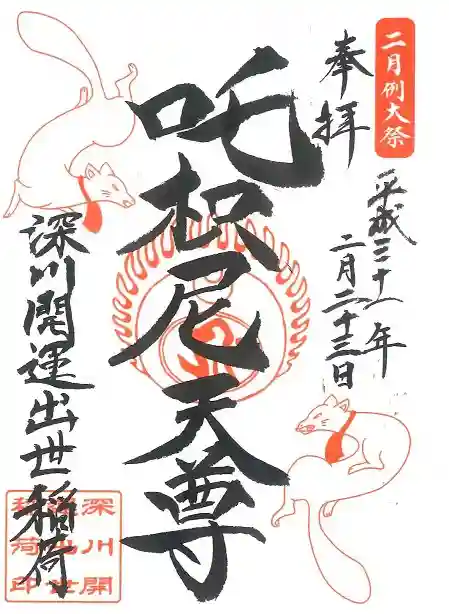 二月例大祭
奉拝
平成三十一年
二月二十三日
吒枳尼天尊
深川開運出世稲荷
深川開
運出世
稲荷印